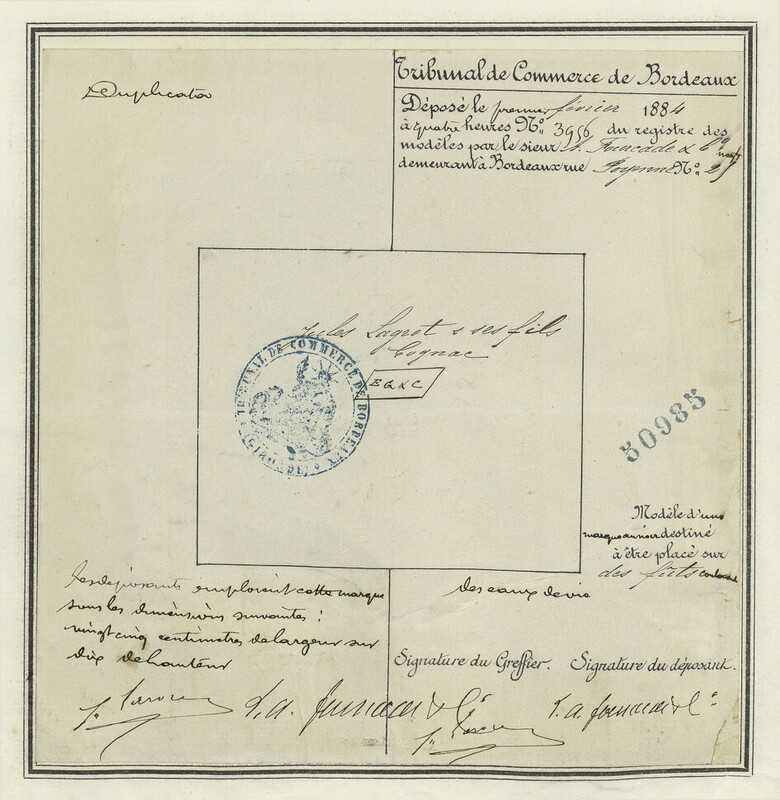 Duplicata
Tribunal de Commerce de Bordeaux
Déposé le premier février 1884
à quatre heures N° 3956 du registre des
modèles par le sieur & Cie
demeurant à Bordeaux rue N° 29
Jules & ses fils
Cognac
TRIBUNAL DE COMMERCE DE BORDEAUX
(GIRONDE)
50985
Modèle d'une
marque au noir destiné
à être placé sur
des fûts contenant
des eaux de vie
Les déposants emploient cette marque
sous les dimensions suivantes :
vingt cinq centimètres de largeur sur
dix de hauteur
Signature du Greffier. Signature du déposant.